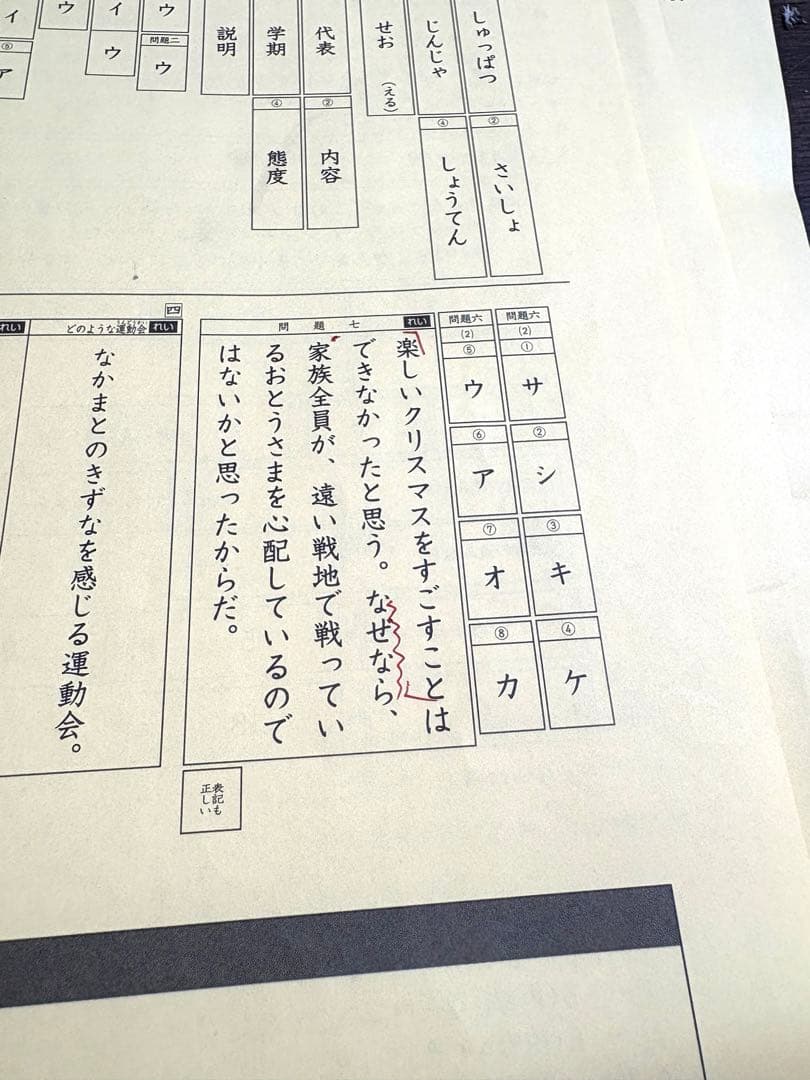 しゅっぱつ
② さいしょ
じんじゃ
④ しょうてん
せお（える）
代表
② 内容
学期
④ 態度
説明
ウ
問題二
ウ
イ
ウ
ウ
イ
⑤
ア
問題六
(2)
① サ
② シ
③ キ
④ ケ
問題六
(2)
⑤ ウ
⑥ ア
⑦ オ
⑧ カ
問題七
れい
楽しいクリスマスをすごすことは
できなかったと思う。なぜなら、
家族全員が、遠い戦地で戦ってい
るおとうさまを心配しているので
はないかと思ったからだ。
表記も
正しい
四
れい
どのような運動会
なかまとのきずなを感じる運動会。
れい